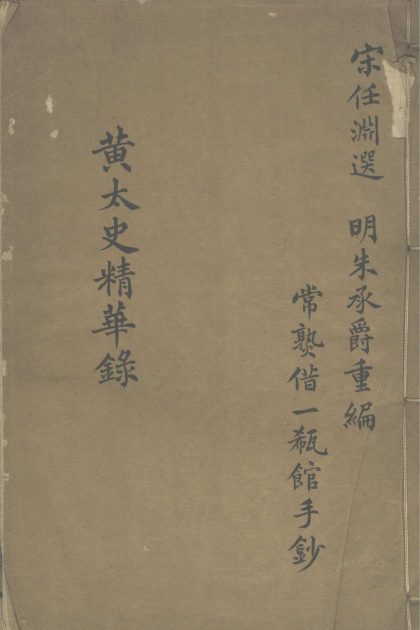 宋任淵選　明朱承爵重編
常熟借一瓻館手鈔
黄太史精華錄